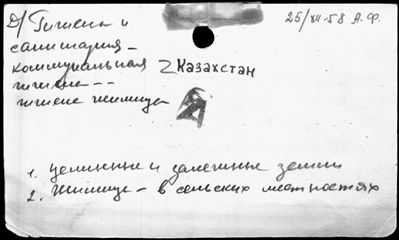 Д/ Гигиена и
санитария -
коммунальная
гигиена --
гигиена жилища
25/XII-58 А.Ф.
2 Казахстан
1. Целинные и залежные земли
2. Жилище - в сельских местностях